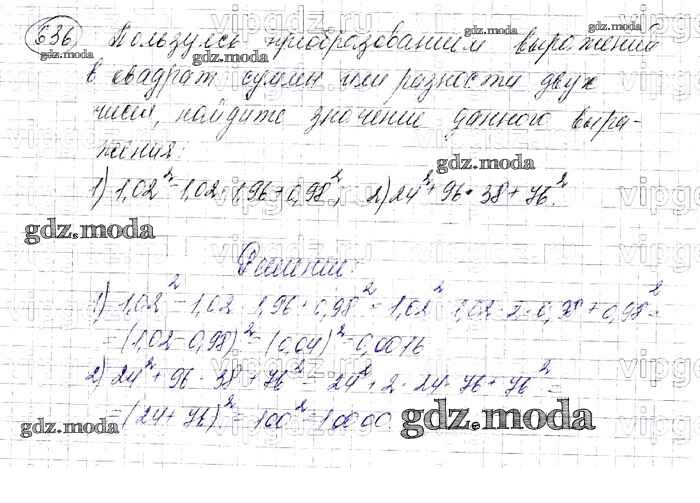 636) Пользуясь преобразованием выражений
в квадрат суммы или разности двух
чисел, найдите значение данного выра-
жения:
1) 1,02² - 1,02 · 1,96 + 0,98²; 2) 24² + 96 · 38 + 76².
Решение:
1) 1,02² - 1,02 · 1,96 + 0,98² = 1,02² - 1,02 · 2 · 0,98 + 0,98² =
= (1,02 - 0,98)² = (0,04)² = 0,0016
2) 24² + 96 · 38 + 76² = 24² + 2 · 24 · 76 + 76² =
= (24 + 76)² = 100² = 10000
gdz.moda
gdz.moda
gdz.moda
gdz.moda
gdz.moda
gdz.moda
gdz.moda
gdz.moda
vipgdz.ru